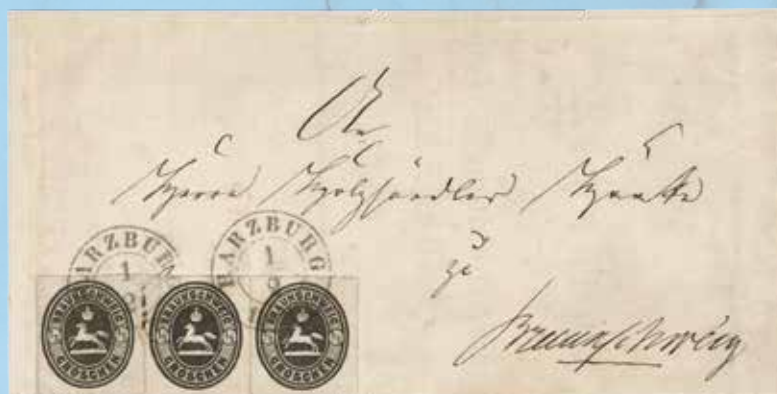 An
Herrn Holzhändler
zu
Braunschweig
ARZBUR
1
HARZBURG
1
9
BRAUNSCHWEIG
GROSCHEN
BRAUNSCHWEIG
GROSCHEN
BRAUNSCHWEIG
GROSCHEN